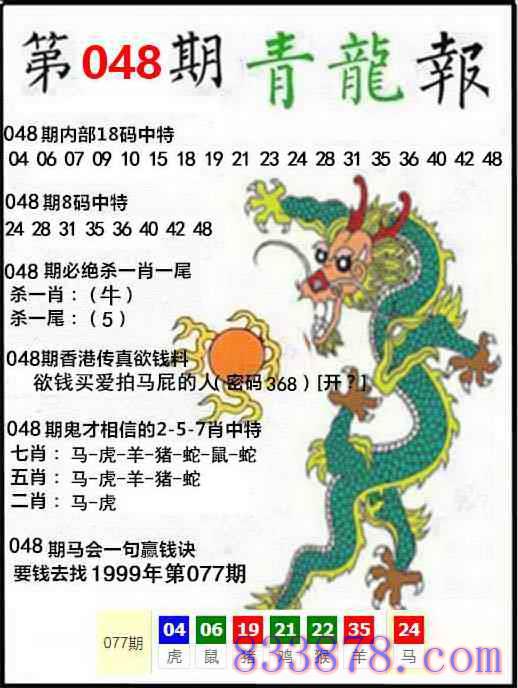 第048期 青龍報
048期内部18码中特
04 06 07 09 10 15 18 19 21 23 24 28 31 35 36 40 42 48
048期8码中特
24 28 31 35 36 40 42 48
048期必绝杀一肖一尾
杀一肖：（牛）
杀一尾：（5）
048期香港传真欲钱料
欲钱买爱拍马屁的人(密码368)[开？]
048期鬼才相信的2-5-7肖中特
七肖：马-虎-羊-猪-蛇-鼠-蛇
五肖：马-虎-羊-猪-蛇
二肖：马-虎
048期马会一句赢钱诀
要钱去找1999年第077期
077期 04 06 19 21 22 35 24
虎 鼠 猪 鸡 猴 羊 马
833878.com